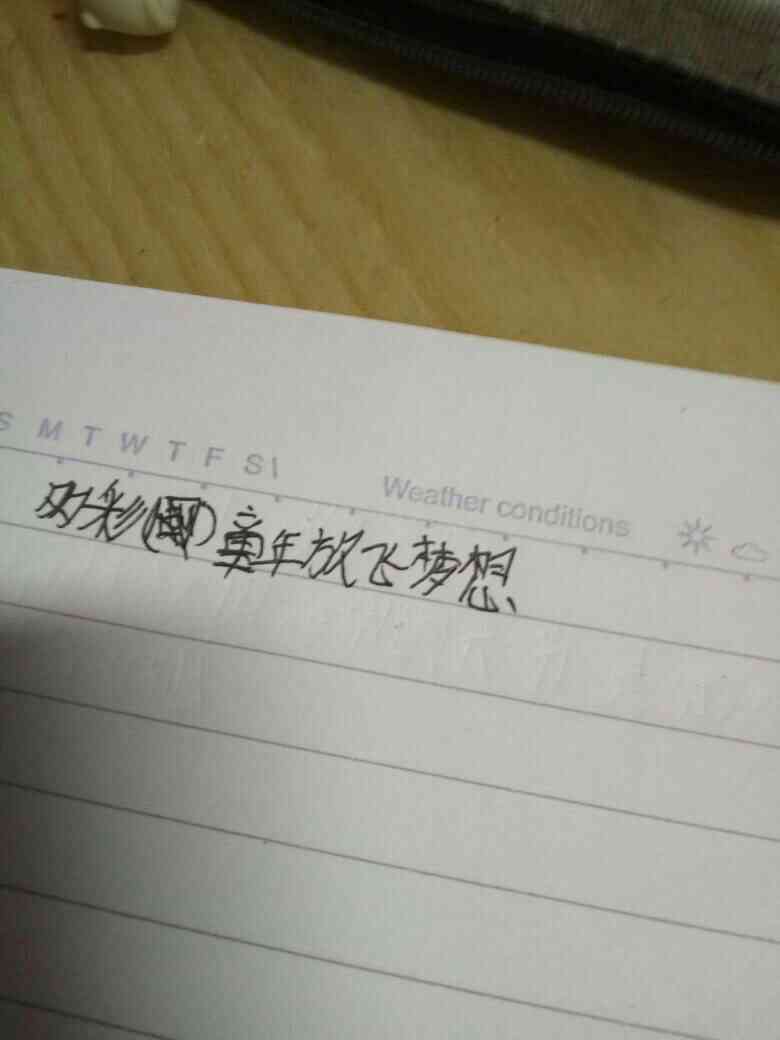 S M T W T F S Weather conditions
多彩童年放飞梦想